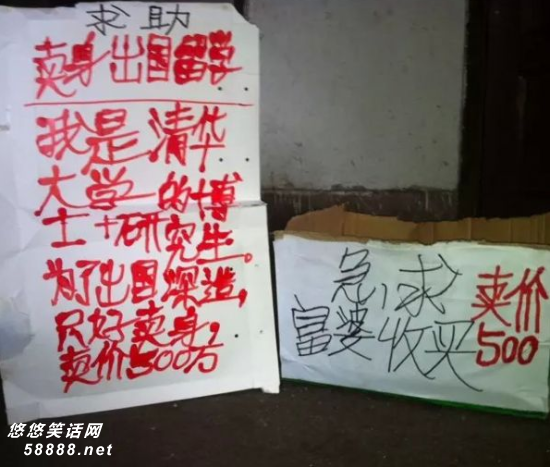 求助
卖身出国留学
我是清华
大学的博
士+研究生。
为了出国深造,
只好卖身,
卖价500万
急求
富婆收买
卖价
500
悠悠笑话网
58888.net